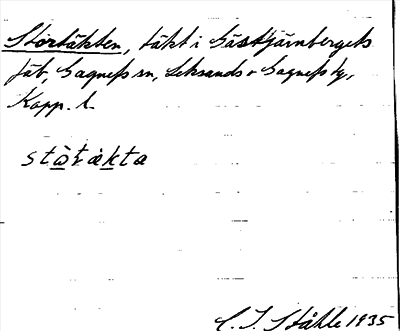 Stortäkten, täkt i Gästjärnbergets
fäb, Gagnefs sn, Leksands o Gagnefs tg,
Kopp. l.
stò̱tàḵta
C. I. Ståhle 1935